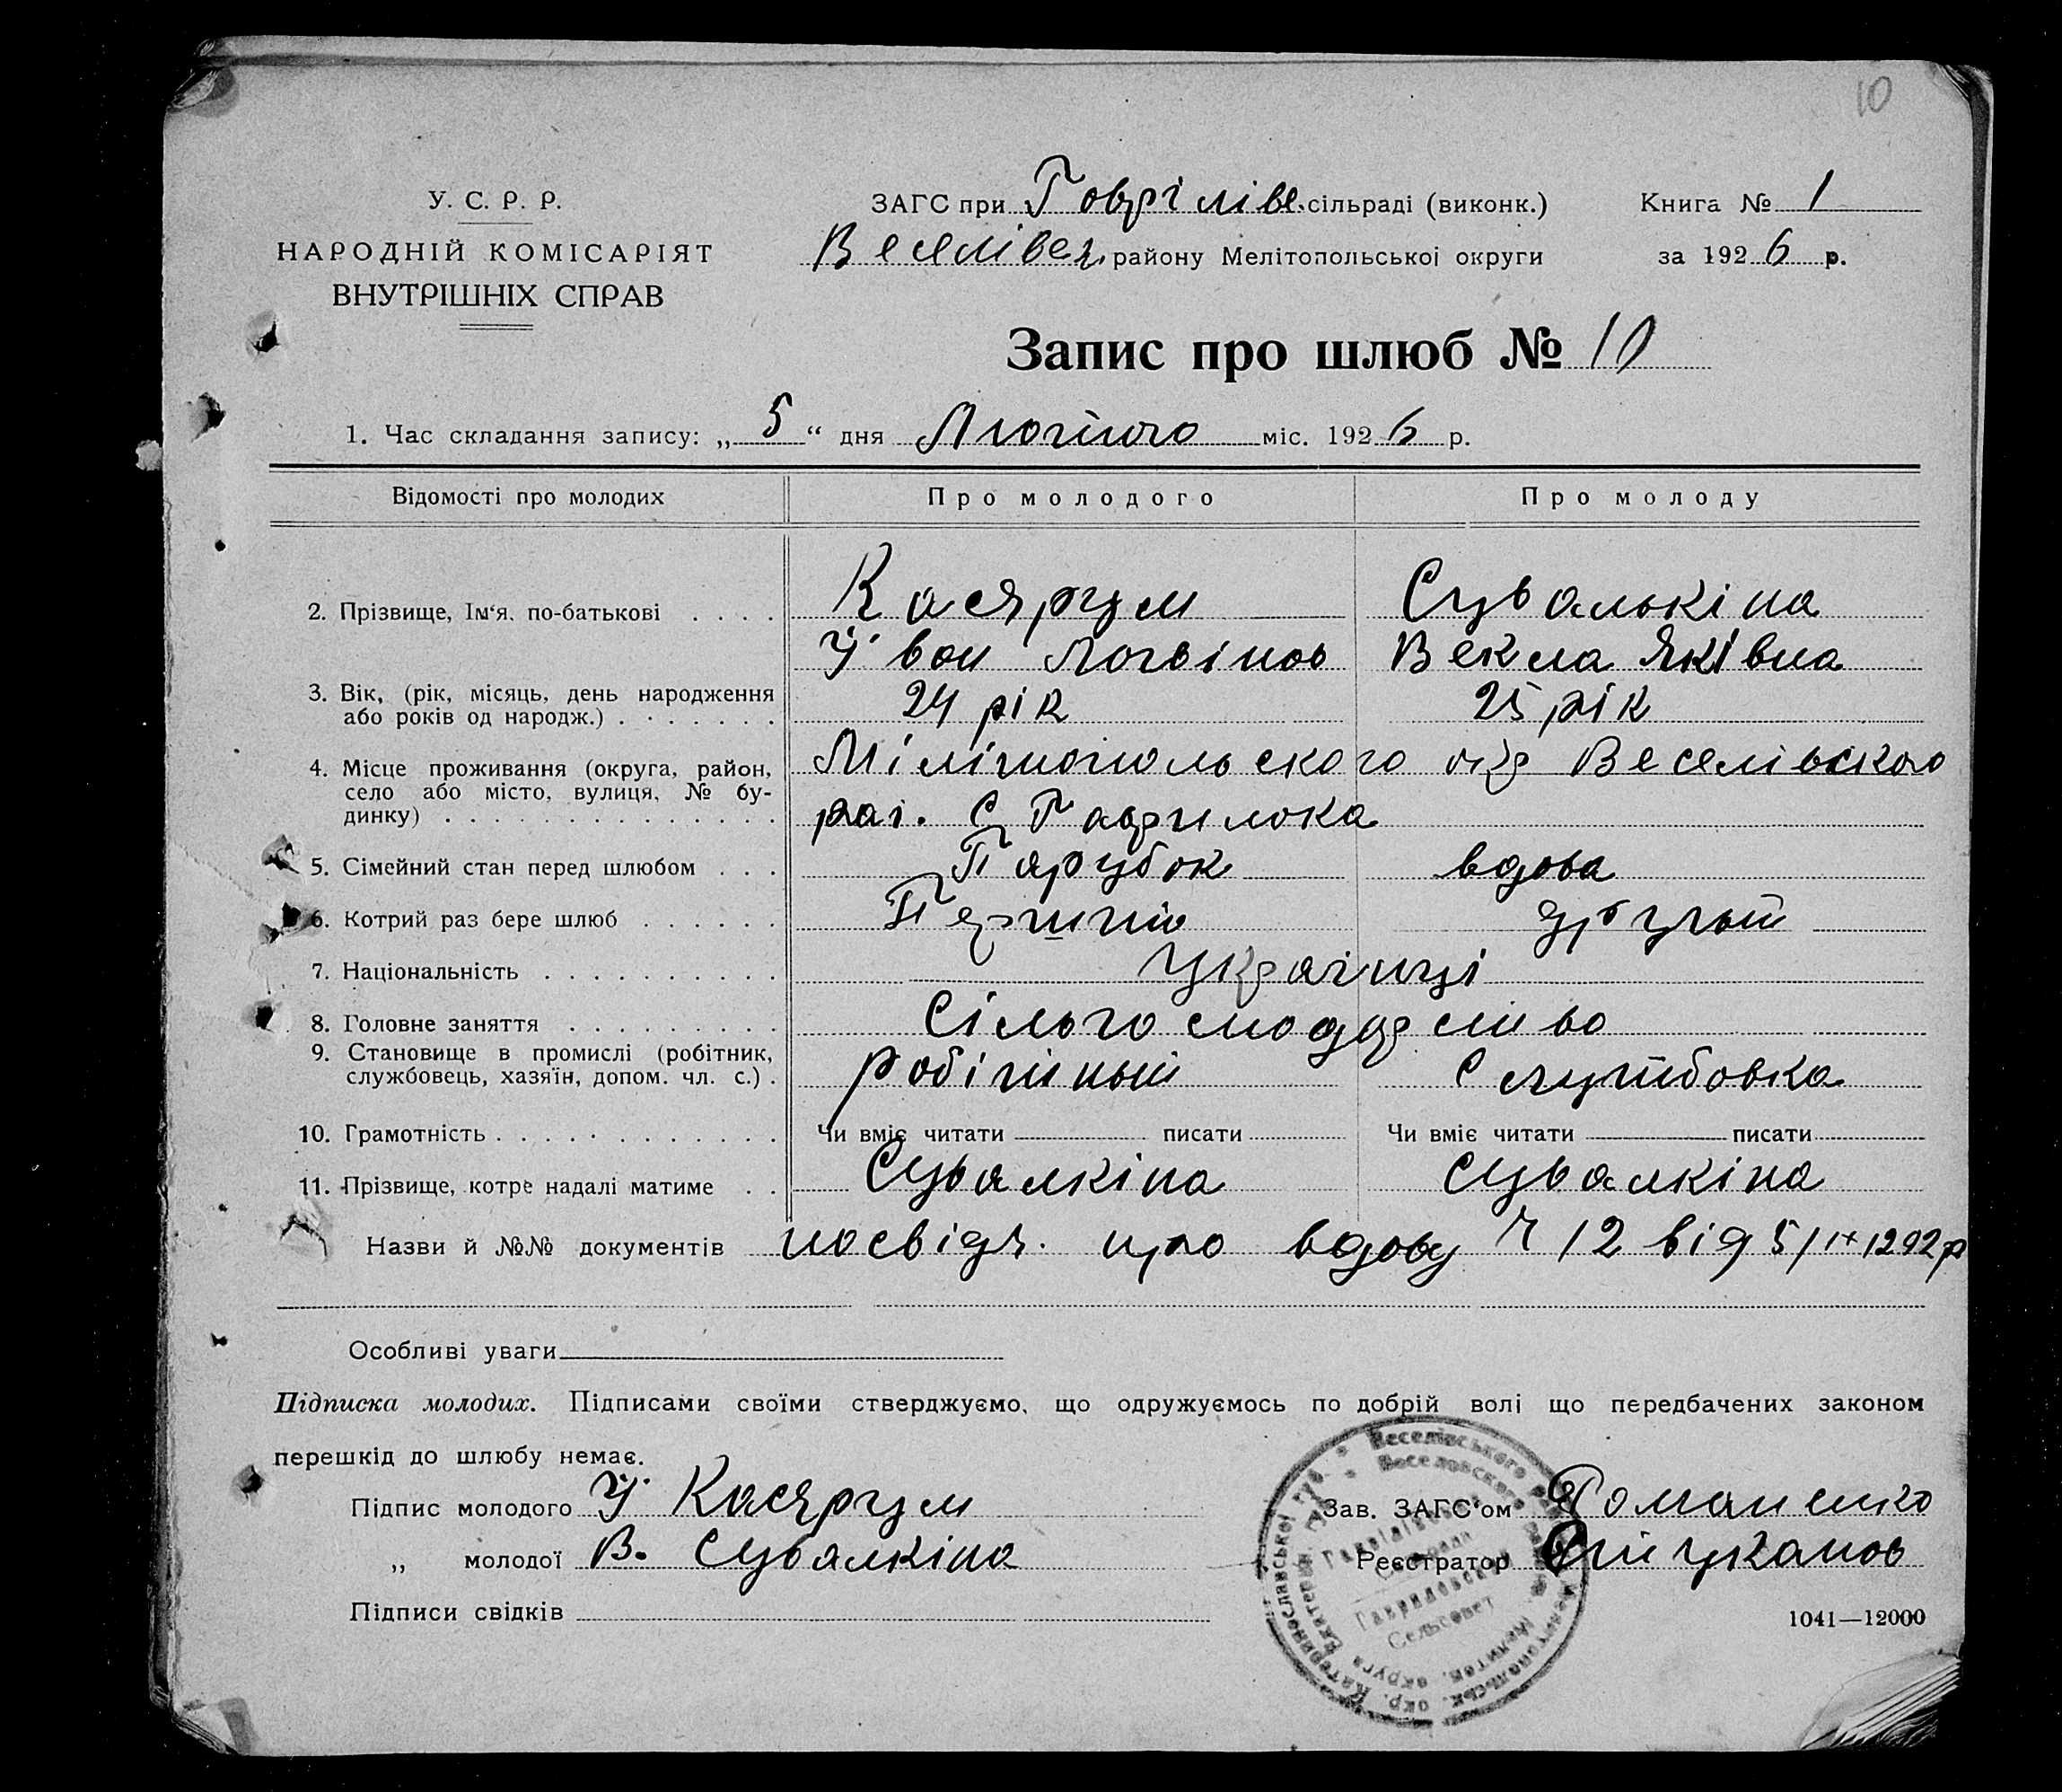 10
У. С. Р. Р.
НАРОДНІЙ КОМІСАРІЯТ
ВНУТРІШНІХ СПРАВ
ЗАГС при Говріліве. сільраді (виконк.)
Веселівск. району Мелітопольськоі округи
Книга № 1
за 1926 р.
Запис про шлюб № 10
1. Час складання запису: „ 5 “ дня Лютого міс. 1926 р.
Відомості про молодих Про молодого Про молоду
2. Прізвище, Ім‘я. по-батькові . . . . Сувалькіна
Іван Логвінов Векла Яківна
3. Вік, (рік, місяць, день народження
або років од народж.) . . . . . . . 24 рік 25 рік
4. Місце проживання (округа, район,
село або місто, вулиця, № бу-
динку) . . . . . . . . . . . . . .
Мілітопольского окр Веселівского
раі. С Гаврилока
5. Сімейний стан перед шлюбом . . . Парубок вдова
6. Котрий раз бере шлюб . . . . . . Перший другый
7. Національність . . . . . . . . . . Украінці
8. Головне заняття . . . . . . . . .
9. Становище в промислі (робітник,
службовець, хазяїн, допом. чл. с.) . робітный
10. Грамотність . . . . . . . . . . . . Чи вміє читати писати Чи вміє читати писати
11. Прізвище, котре надалі матиме . . Сувалкіна Сувалкіна
Назви й №№ документів посвідч. про вдову Ч 12 від 5/
Особливі уваги
Підписка молодих. Підписами своїми стверджуємо, що одружуємось по добрій волі що передбачених законом
перешкід до шлюбу немає.
Підпис молодого
„ молодої В. Сувалкіна
Підписи свідків
Зав. ЗАГС‘ом Романенко
Реєстратор
Гавриловский
Сельсовет
1041—12000